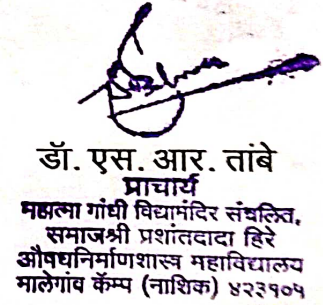 डॉ. एस. आर. तांबे
प्राचार्य
महात्मा गांधी विद्यामंदिर संचलित,
समाजश्री प्रशांतदादा हिरे
औषधनिर्माणशास्त्र महाविद्यालय
मालेगांव कॅम्प (नाशिक) ४२३१०५